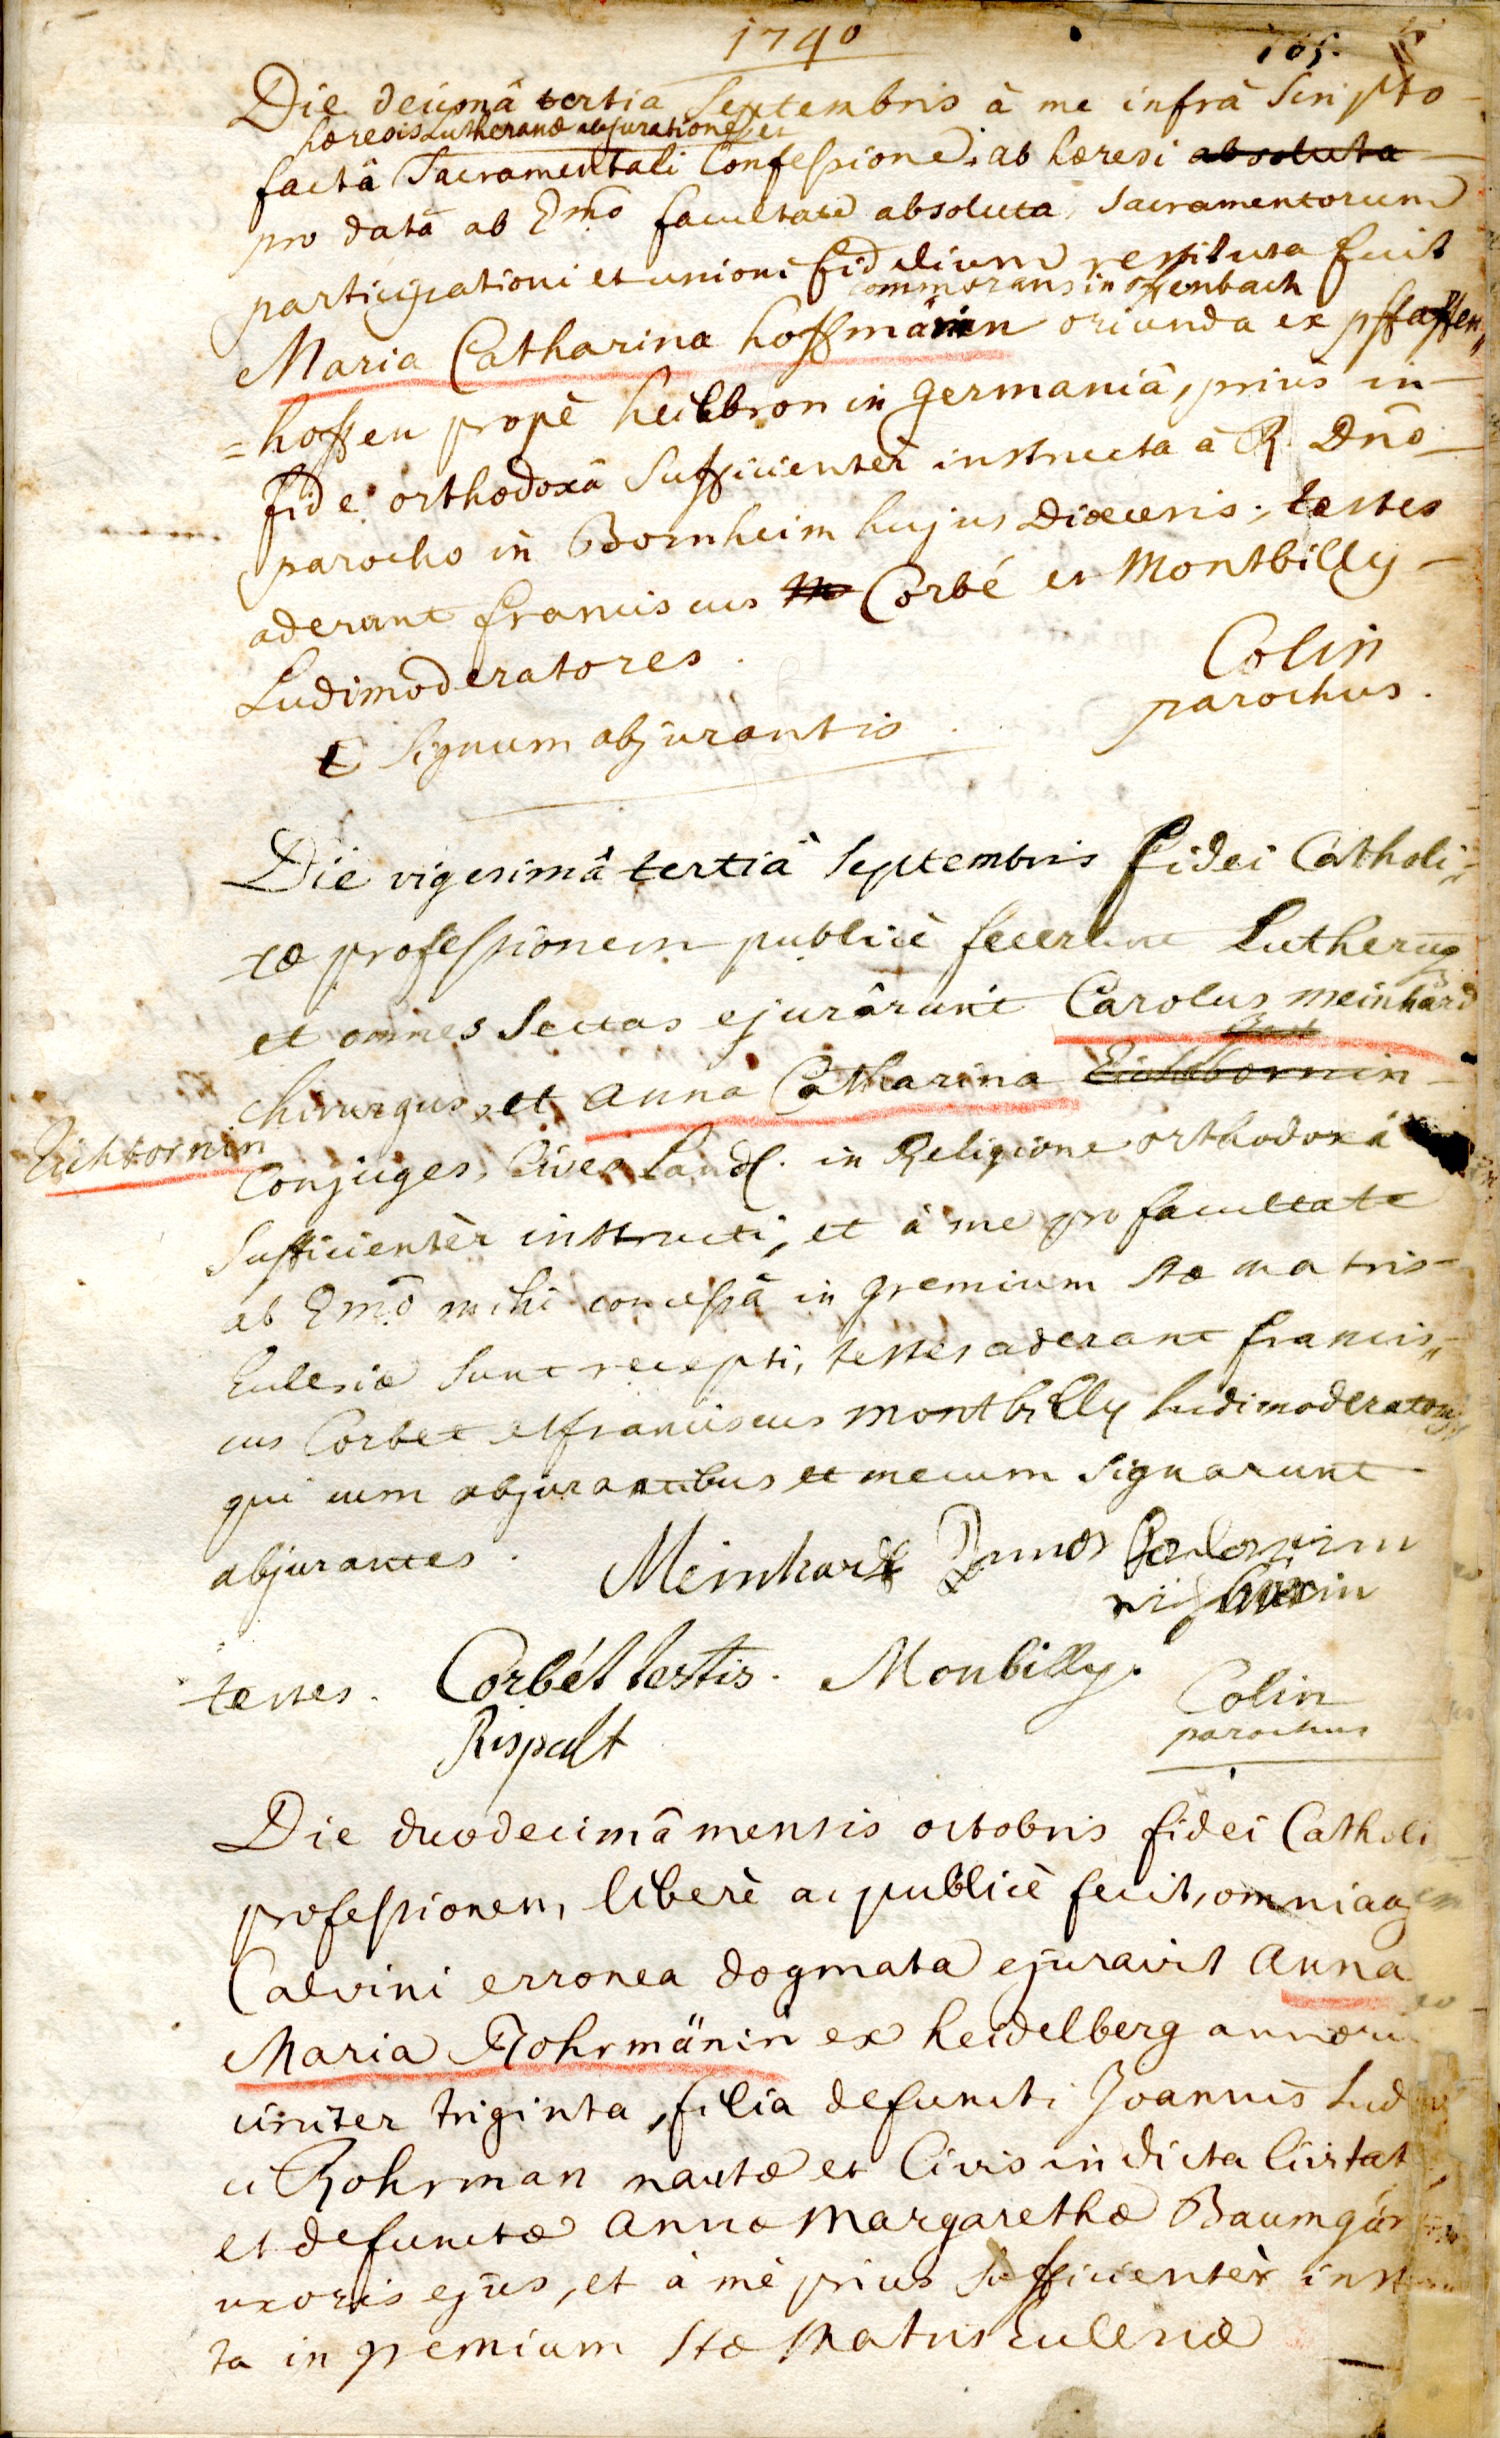 1740
105.
Die decimâ tertia Septembris à me infrà Scripto
hæresis Lutheranæ abjuratione, et
factâ Sacramentali Confessione, ab hæresi absoluta
pro datâ ab Emo facultate absoluta, Sacramentorum
participationi et unioni fidelium restituta fuit
commorans in offenbach
Maria Catharina hoffmänin oriunda ex pfaffen„
=hoffen propè heilbron in germaniâ, priùs in
fide orthodoxâ Sufficientèr instructa à R. Dno
parocho in Bornheim hujus Diœcesis; testes
aderant franciscus Corbé et Montbilly
Ludimoderatores.
Colin
parochus.
Signum abjurantis
Die vigesimâ tertiâ Septembris fidei Catholi„
cæ professionem publicè fecerunt Lutherum
et omnes Sectas ejurârunt Carolus meinhard
chirurgus, et Anna Catharina Eichbornin
Eichbornin
Conjuges, Cives Land. in Religione orthodoxâ
Sufficientèr instructi, et à me pro facultate
ab Emo mihi concessâ in gremium stæ matris
Ecclesiæ Sunt recepti, testes aderant francis„
cus Corbet et franciscus montbilly ludimoderatores
qui cum abjurantibus et mecum Signarunt
abjurantes.
Meinhard
testes. Corbét testis. Monbilly.
Rispalt
Colin
parochus
Die duodecimâ mensis octobris fidei Catholi
professionem, liberè ac publicè fecit, omniaq
Calvini erronea dogmata ejuravit Anna
Maria Rohrmänin ex heidelberg annoru
circiter triginta, filia defuncti Joannis Lud
ci Rohrman nautæ et Civis in dicta Civitat
et defunctæ Annæ Margarethæ Baumgär
uxoris ejus, et à mè prius Sufficientèr inst
ta in gremium Stæ Matris Ecclesiæ